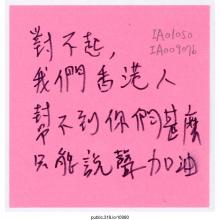 IA01050
IA009076
對不起,
我們香港人
幫不到你們甚麼
只能說聲加油
public.318.io/10980